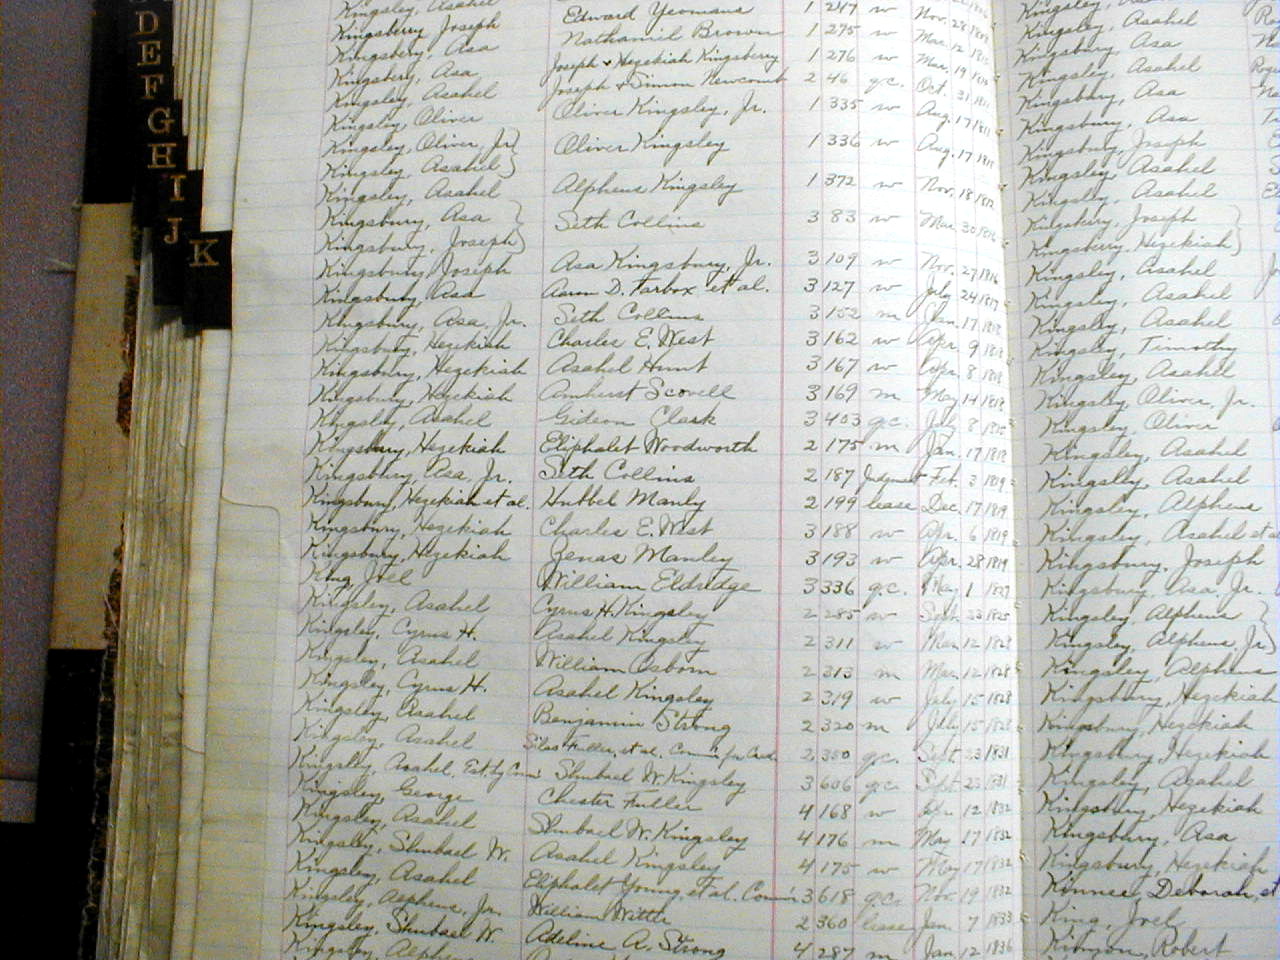 D
E
F
G
H
I
J
K
Kingsley, Asahel Edward Yeomans 1 247 w Nov. 28
Kingsberry Joseph Nathaniel Brown 1 275 w Mar. 12
Kingsberry, Asa Joseph & Hezekiah Kingsberry 1 276 w Mar. 19
Kingsbery, Asa Joseph & Simon Newcomb 2 46 q.c. Oct. 31
Kingsley, Asahel Oliver Kingsley, Jr. 1 335 w Aug. 17
Kingsley, Oliver
Kingsley, Oliver, Jr } Oliver Kingsley 1 336 w Aug. 17
Kingsley, Asahel }
Kingsley, Asahel Alpheus Kingsley 1 372 w Nov. 18
Kingsbury, Asa } Seth Collins 3 83 w Mar. 30 1816
Kingsbury, Joseph }
Kingsbury, Joseph Asa Kingsbury, Jr. 3 109 w Nov. 27 1816
Kingsbury, Asa Aaron D. Farbox et al. 3 127 w July 24 1817
Kingsbury, Asa, Jr. Seth Collins 3 152 m Jan. 17 1818
Kingsbury, Hezekiah Charles E. West 3 162 w Apr. 9 1818
Kingsbury, Hezekiah Asahel Hunt 3 167 w Apr. 8 1818
Kingsbury, Hezekiah Amherst Scovell 3 169 m May 14 1818
Kingsley, Asahel Gideon Clark 3 403 q.c. July 8
Kingsbury, Hezekiah Eliphalet Woodworth 2 175 m Jan. 17 1818
Kingsbury, Asa, Jr. Seth Collins 2 187 Judgment Feb. 3 1819
Kingsbury, Hezekiah et al. Hubbel Manly 2 199 lease Dec. 17 1819
Kingsbury, Hezekiah Charles E. West 3 188 w Apr. 6 1819
Kingsbury, Hezekiah Zenas Manley 3 193 w Apr. 28 1819
King, Joel William Eldridge 3 336 q.c. May 1 1827
Kingsley, Asahel Cyrus H. Kingsley 2 285 w Sept. 23 1825
Kingsley, Cyrus H. Asahel Kingsley 2 311 w Mar. 12 1828
Kingsley, Asahel William Osborn 2 313 m Mar. 12 1828
Kingsley, Cyrus H. Asahel Kingsley 2 319 w July 15 1828
Kingsley, Asahel Benjamin Strong 2 320 m July 15 1828
Kingsley, Asahel Silas Fuller, et al. 2 350 q.c. Sept. 23 1831
Kingslly, Asahel, Est. by Com Shubael W. Kingsley 3 606 q.c. Sept. 23 1831
Kingsley, George Chester Fuller 4 168 w Apr. 12 1832
Kingsley, Asahel Shubael W. Kingsley 4 176 m May 17 1832
Kingsley, Shubael W. Asahel Kingsley 4 175 w May 17 1832
Kingsley, Asahel Eliphalet Young, et al. Com 3 618 q.c. Nov. 19 1832
Kingsley, Alpheus, Jr. William Witter 2 360 lease Jan. 7 1833
Kingsley, Shubael W. Adeline A. Strong 4 287 m Jan. 12 1836
Kingsley, Alpheus
Kingsley, Asahel
Kingsbury, Asa
Kingsley, Asahel
Kingsbury, Asa
Kingsbury, Asa
Kingsbury, Joseph
Kingsley, Asahel
Kingsley, Asahel
Kingsbery, Joseph }
Kingsberry, Hezekiah }
Kingsley, Asahel
Kingsley, Asahel
Kingsley, Asahel
Kingsley, Timothy
Kingsley, Asahel
Kingsley, Oliver, Jr.
Kingsley, Oliver
Kingsley, Asahel
Kingslly, Asahel
Kingsley, Alpheus
Kingsley, Asahel et a
Kingsbury, Joseph
Kingsbury, Asa, Jr.
Kingsley, Alpheus }
Kingsley, Alpheus, Jr }
Kingsley, Alpheus
Kingsbury, Hezekiah
Kingsbury, Hezekiah
Kingsbury Hezekiah
Kingsley, Asahel
Kingsbury, Hezekiah
Kingsbury, Asa
Kingsbury, Hezekiah
Kinnee, Deborah, et
King, Joel
Kinyon, Robert